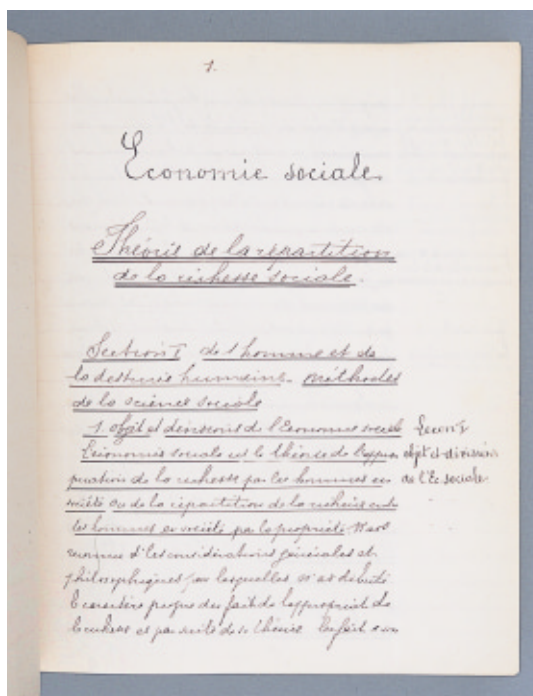 1.
Economie sociale
Théorie de la répartition
de la richesse sociale.
Section I de l homme et de
la destinée humaine. Méthodes
de la science sociale
1. Objet et divisions de l'Economie sociale
Leçon I
L'économie sociale est la théorie de l'appro
objet et division
priation de la richesse par les hommes en
de l'Ec sociale
société ou de la répartition de la richesse entre
les hommes en société par la propriété
générales et
philosophiques par lesquelles
le caractère propre du fait de l'appropriat de
la richesse et par suite de la théorie